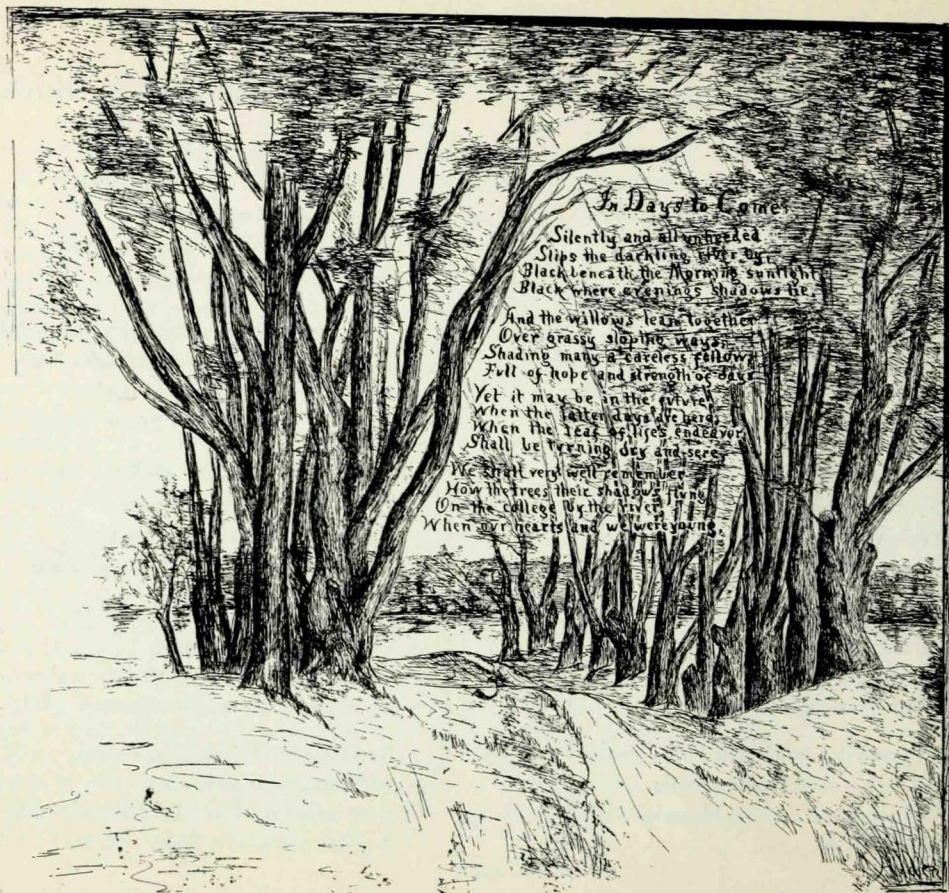 In Days to Come.
Silently and all unheeded
Slips the darkling river by
Black beneath the Morning sunlight
Black where evenings shadows lie.
And the willows lean together
Over grassy sloping ways,
Shading many a careless fellow
Full of hope and strength of days
Yet it may be in the future,
When the latter days are here,
When the leaf of life's endeavor
Shall be turning dry and sere
We shall very well remember
How the trees their shadows flung
On the college by the river,
When our hearts and we were young.